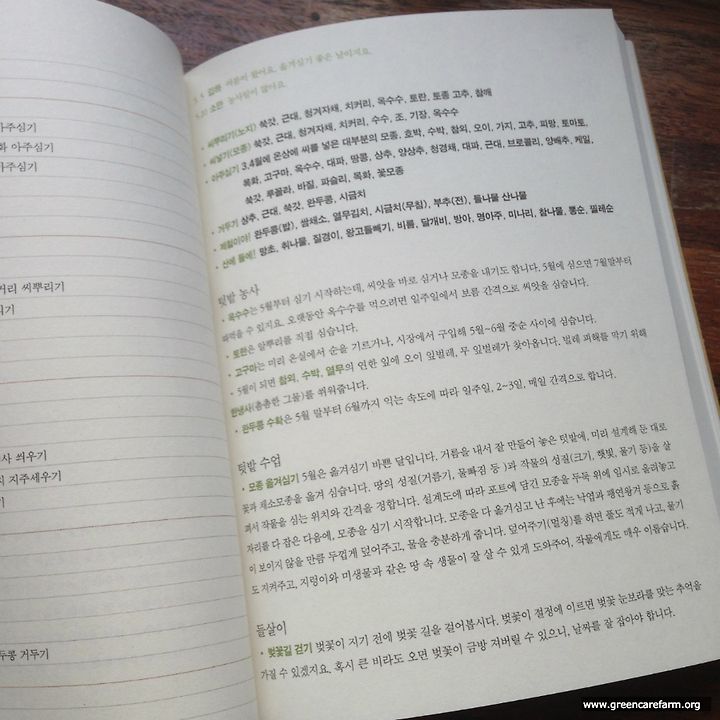 아주심기
화 아주심기
아주심기
거리 씨뿌리기
리기
사 씌우기
지 지주세우기
기
두콩 거두기
5. 4. 감화 여름이 왔어요. 옮겨심기 좋은 날이지요.
5.20 소만 농사일이 많아요.
• 씨뿌리기(노지) 쑥갓, 근대, 청겨자채, 치커리, 옥수수, 토란, 토종 고추, 참깨
• 씨넣기(모종) 쑥갓, 근대, 청겨자채, 치커리, 수수, 조, 기장, 옥수수
• 아주심기 3,4월에 온상에 씨를 넣은 대부분의 모종, 호박, 수박, 참외, 오이, 가지, 고추, 피망, 토마토,
목화, 고구마, 옥수수, 대파, 땅콩, 상추, 양상추, 청경채, 대파, 근대, 브로콜리, 양배추, 케일,
쑥갓, 루꼴라, 바질, 파슬리, 목화, 꽃모종
• 거두기 상추, 근대, 쑥갓, 완두콩, 시금치
• 제철이야! 완두콩(밥), 쌈채소, 열무김치, 시금치(무침), 부추(전), 들나물 산나물
• 산에 들에! 망초, 취나물, 질경이, 왕고들빼기, 비름, 달개비, 방아, 명아주, 미나리, 참나물, 뽕순, 찔레순
텃밭 농사
• 옥수수는 5월부터 심기 시작하는데, 씨앗을 바로 심거나 모종을 내기도 합니다. 5월에 심으면 7월말부터
따먹을 수 있지요. 오랫동안 옥수수를 먹으려면 일주일에서 보름 간격으로 씨앗을 심습니다.
• 토란은 알뿌리를 직접 심습니다.
• 고구마는 미리 온실에서 순을 기르거나, 시장에서 구입해 5월~6월 중순 사이에 심습니다.
• 5월이 되면 참외, 수박, 열무의 연한 잎에 오이 잎벌레, 무 잎벌레가 찾아옵니다. 벌레 피해를 막기 위해
한냉사(촘촘한 그물)를 씌워줍니다.
• 완두콩 수확은 5월 말부터 6월까지 익는 속도에 따라 일주일, 2~3일, 매일 간격으로 합니다.
텃밭 수업
• 모종 옮겨심기 5월은 옮겨심기 바쁜 달입니다. 거름을 내서 잘 만들어 놓은 텃밭에, 미리 설계해 둔 대로
꽃과 채소모종을 옮겨 심습니다. 땅의 성질(거름기, 물빠짐 등 )과 작물의 성질(크기, 햇빛, 물기 등)을 살
펴서 작물을 심는 위치와 간격을 정합니다. 설계도에 따라 포트에 담긴 모종을 두둑 위에 임시로 올려놓고
자리를 다 잡은 다음에, 모종을 심기 시작합니다. 모종을 다 옮겨심고 난 후에는 낙엽과 팽연왕겨 등으로 흙
이 보이지 않을 만큼 두껍게 덮어주고, 물을 충분하게 줍니다. 덮어주기(멀칭)를 하면 풀도 적게 나고, 물기
도 지켜주고, 지렁이와 미생물과 같은 땅 속 생물이 잘 살 수 있게 도와주어, 작물에게도 매우 이롭습니다.
들살이
• 벚꽃길 걷기 벚꽃이 지기 전에 벚꽃 길을 걸어봅시다. 벚꽃이 절정에 이르면 벚꽃 눈보라를 맞는 추억을
가질 수 있겠지요. 혹시 큰 비라도 오면 벚꽃이 금방 져버릴 수 있으니, 날짜를 잘 잡아야 합니다.
www.greencarefarm.org